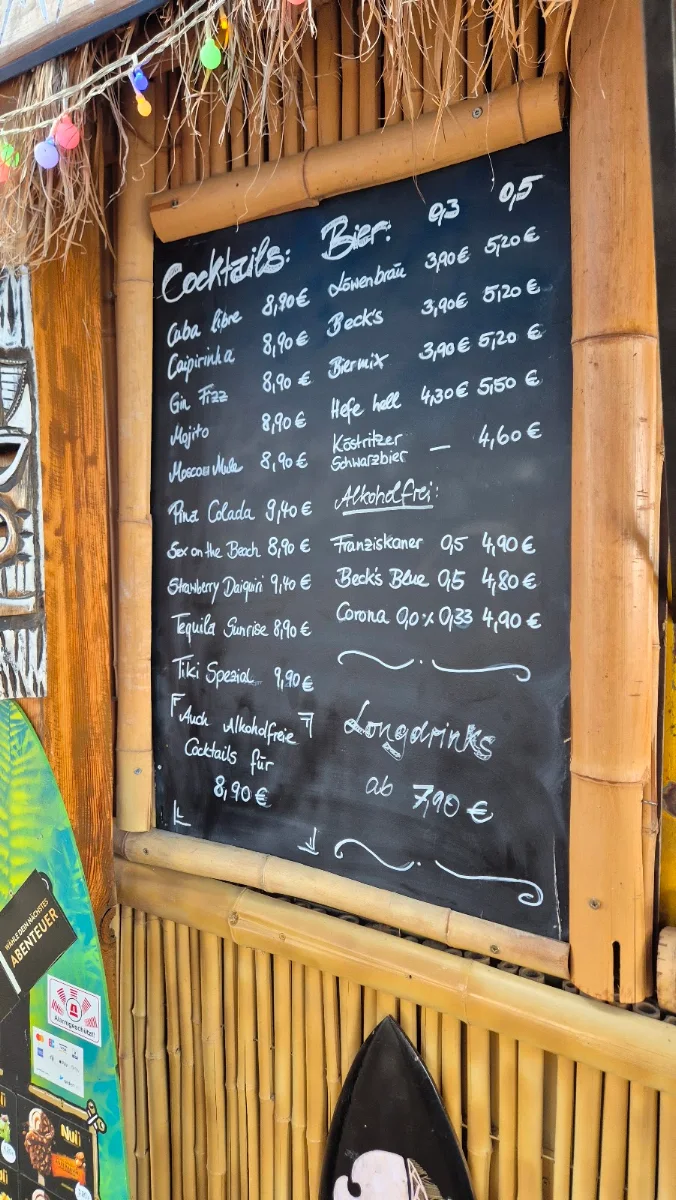 Cocktails:
Cuba libre 8,90 €
Caipirinha 8,90 €
Gin Fizz 8,90 €
Mojito 8,90 €
Moscow Mule 8,90 €
Pina Colada 9,40 €
Sex on the Beach 8,90 €
Strawberry Daiquiri 9,40 €
Tequila Sunrise 8,90 €
Tiki Spezial 9,90 €
Auch Alkoholfreie
Cocktails für
8,90 €
Bier: 0,3 0,5
Löwenbräu 3,90 € 5,20 €
Beck's 3,90 € 5,20 €
Biermix 3,90 € 5,20 €
Hefe hell 4,30 € 5,50 €
Köstritzer
Schwarzbier — 4,60 €
Alkoholfrei:
Franziskaner 0,5 4,90 €
Beck's Blue 0,5 4,80 €
Corona 0,0% 0,33 4,90 €
Longdrinks
ab 7,90 €
WÄHLE DEIN NÄCHSTES
ABENTEUER
Alarmgeschützt!
Nuii